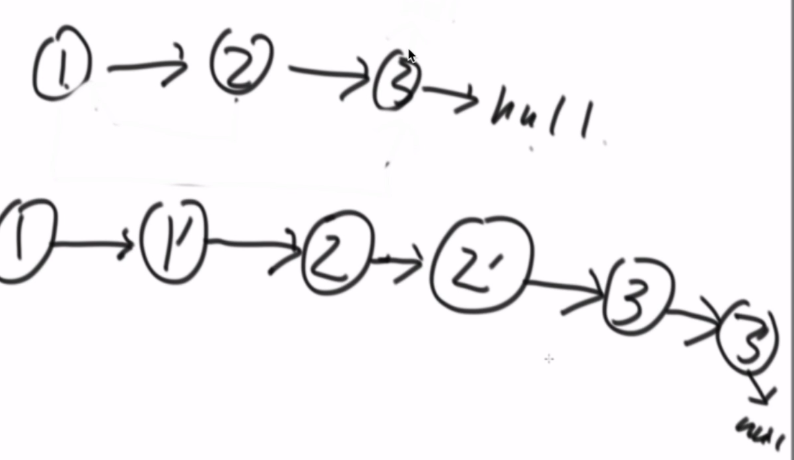 1 → 2 → 3 → null
1 → 1' → 2 → 2' → 3 → 3'
null